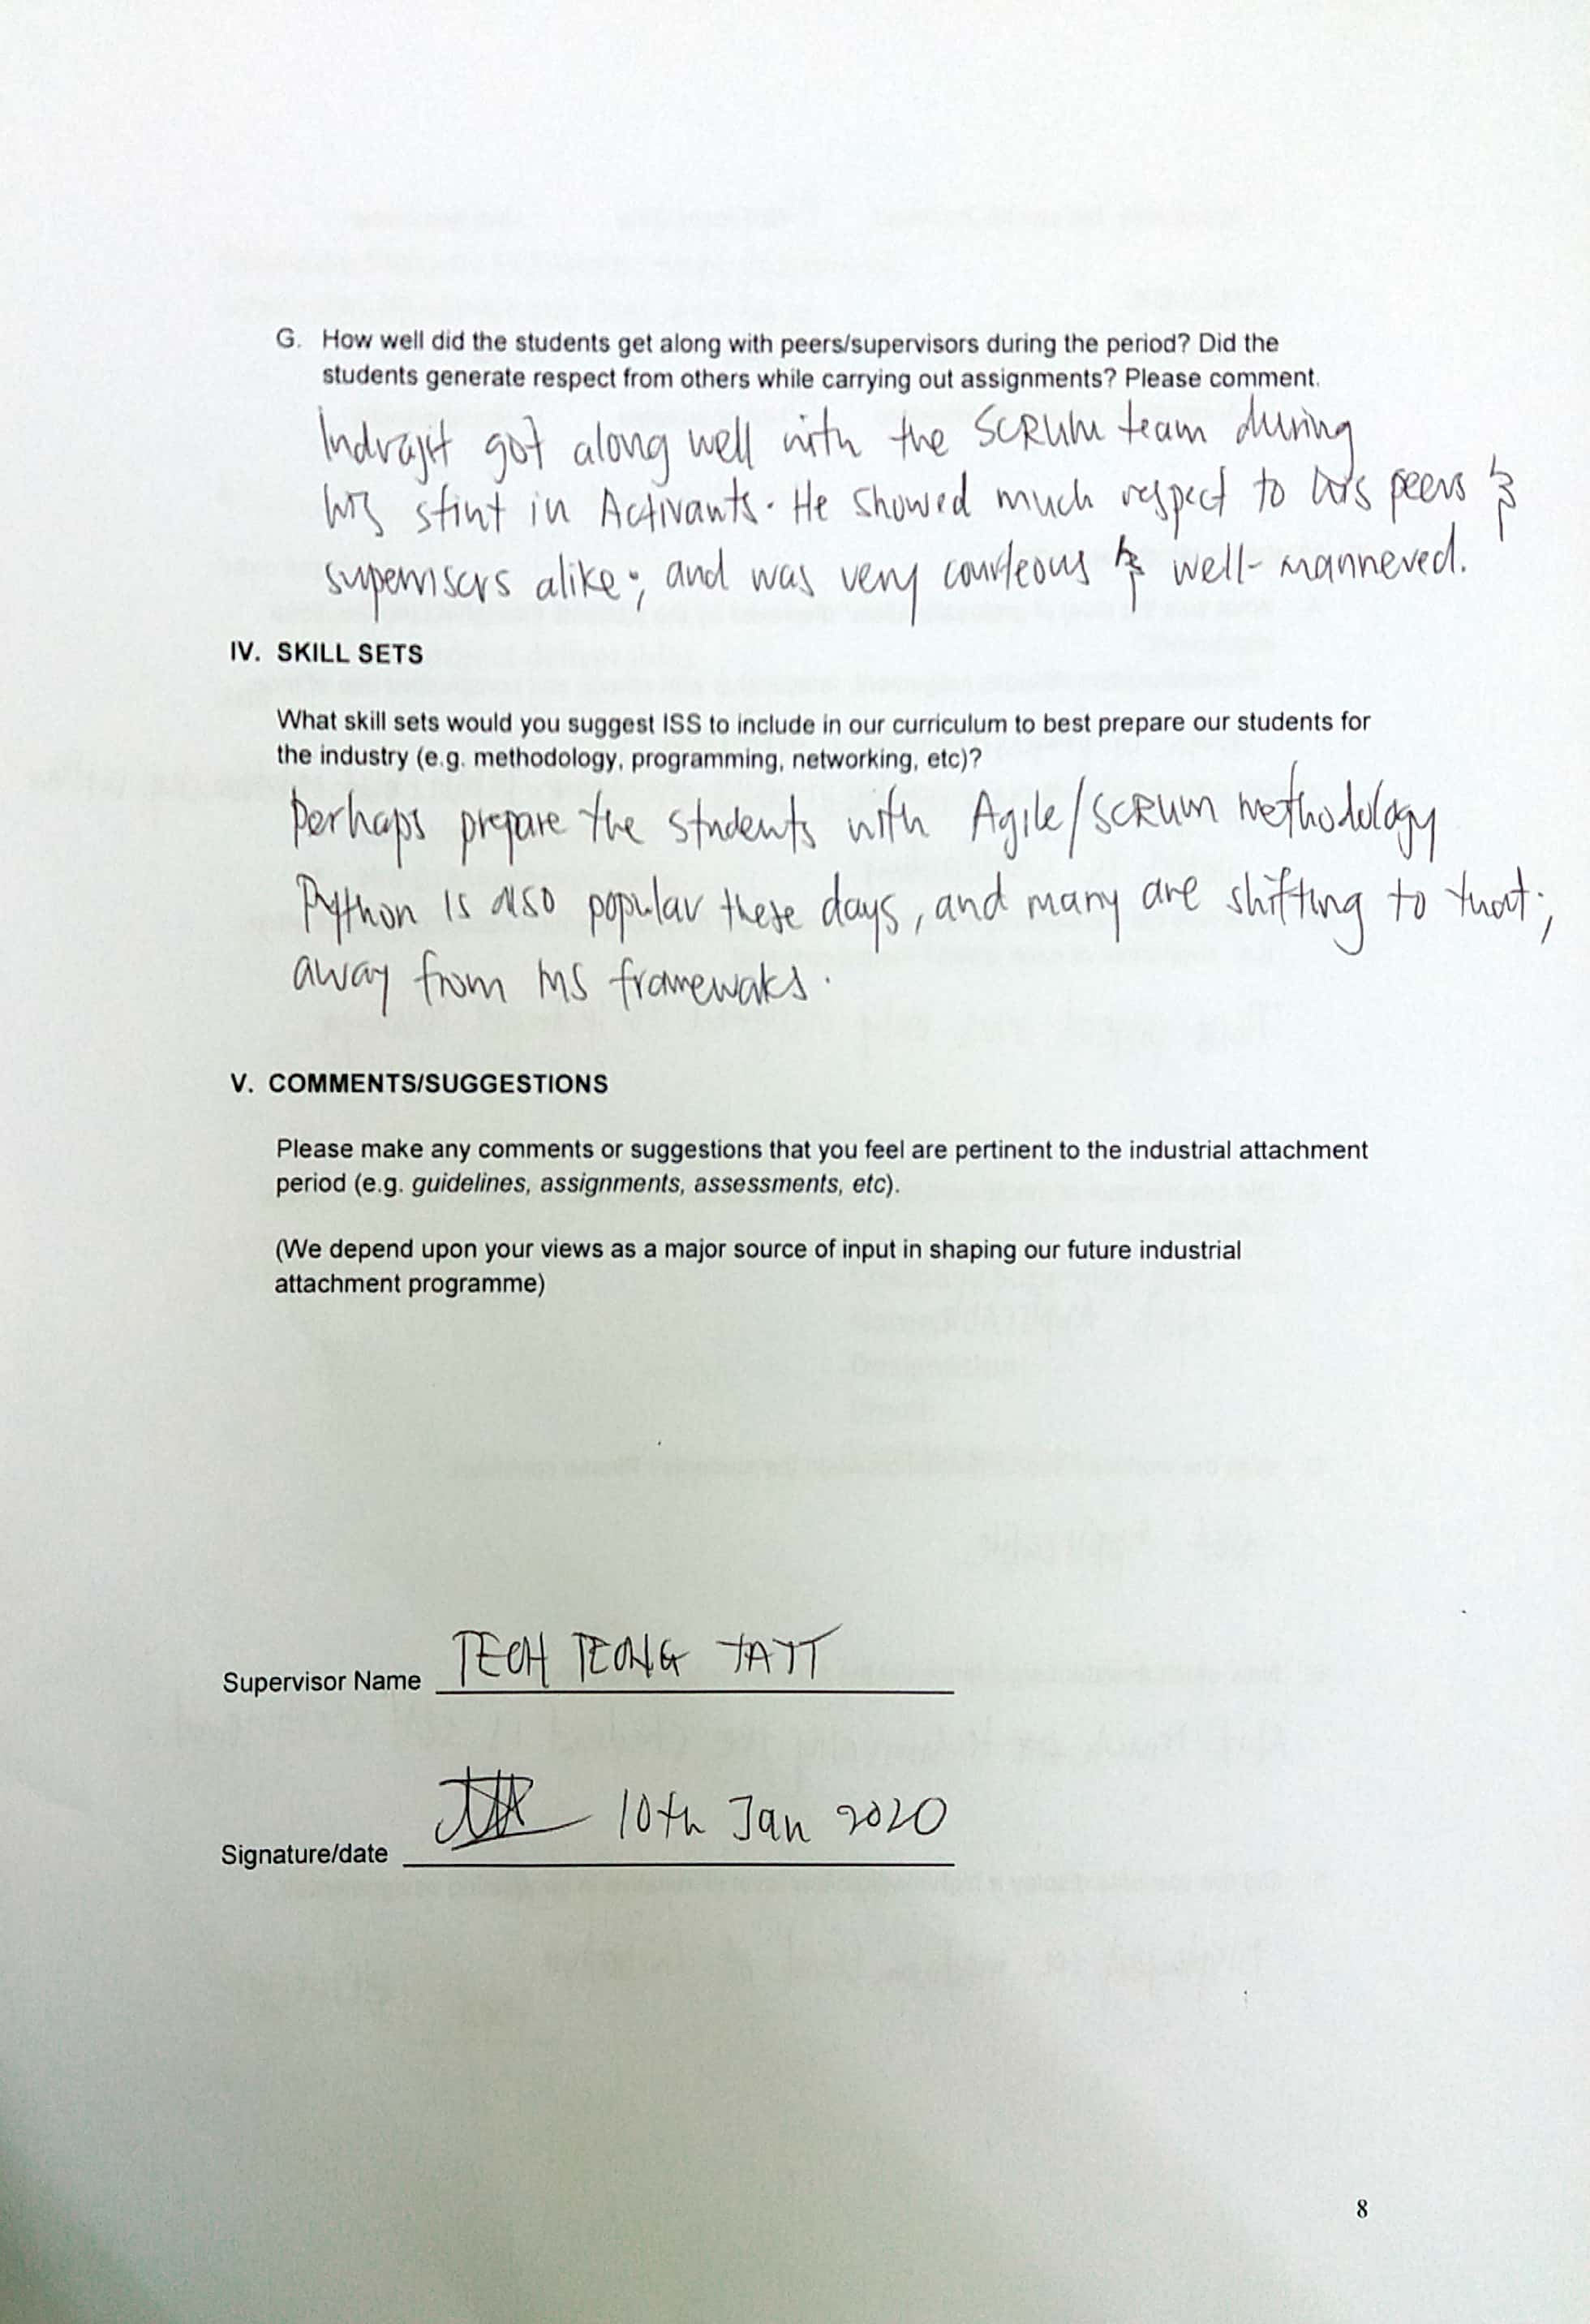 G. How well did the students get along with peers/supervisors during the period? Did the
students generate respect from others while carrying out assignments? Please comment.
Indrajit got along well with the SCRUM team during
his stint in Activants. He showed much respect to his peers &
supervisors alike; and was very courteous & well-mannered.
IV. SKILL SETS
What skill sets would you suggest ISS to include in our curriculum to best prepare our students for
the industry (e.g. methodology, programming, networking, etc)?
Perhaps prepare the students with Agile/SCRUM methodology
Python is also popular these days, and many are shifting to that;
away from MS framewoks.
V. COMMENTS/SUGGESTIONS
Please make any comments or suggestions that you feel are pertinent to the industrial attachment
period (e.g. guidelines, assignments, assessments, etc).
(We depend upon your views as a major source of input in shaping our future industrial
attachment programme)
Supervisor Name TEOH TEONG TATT
Signature/date 10th Jan 2020
8